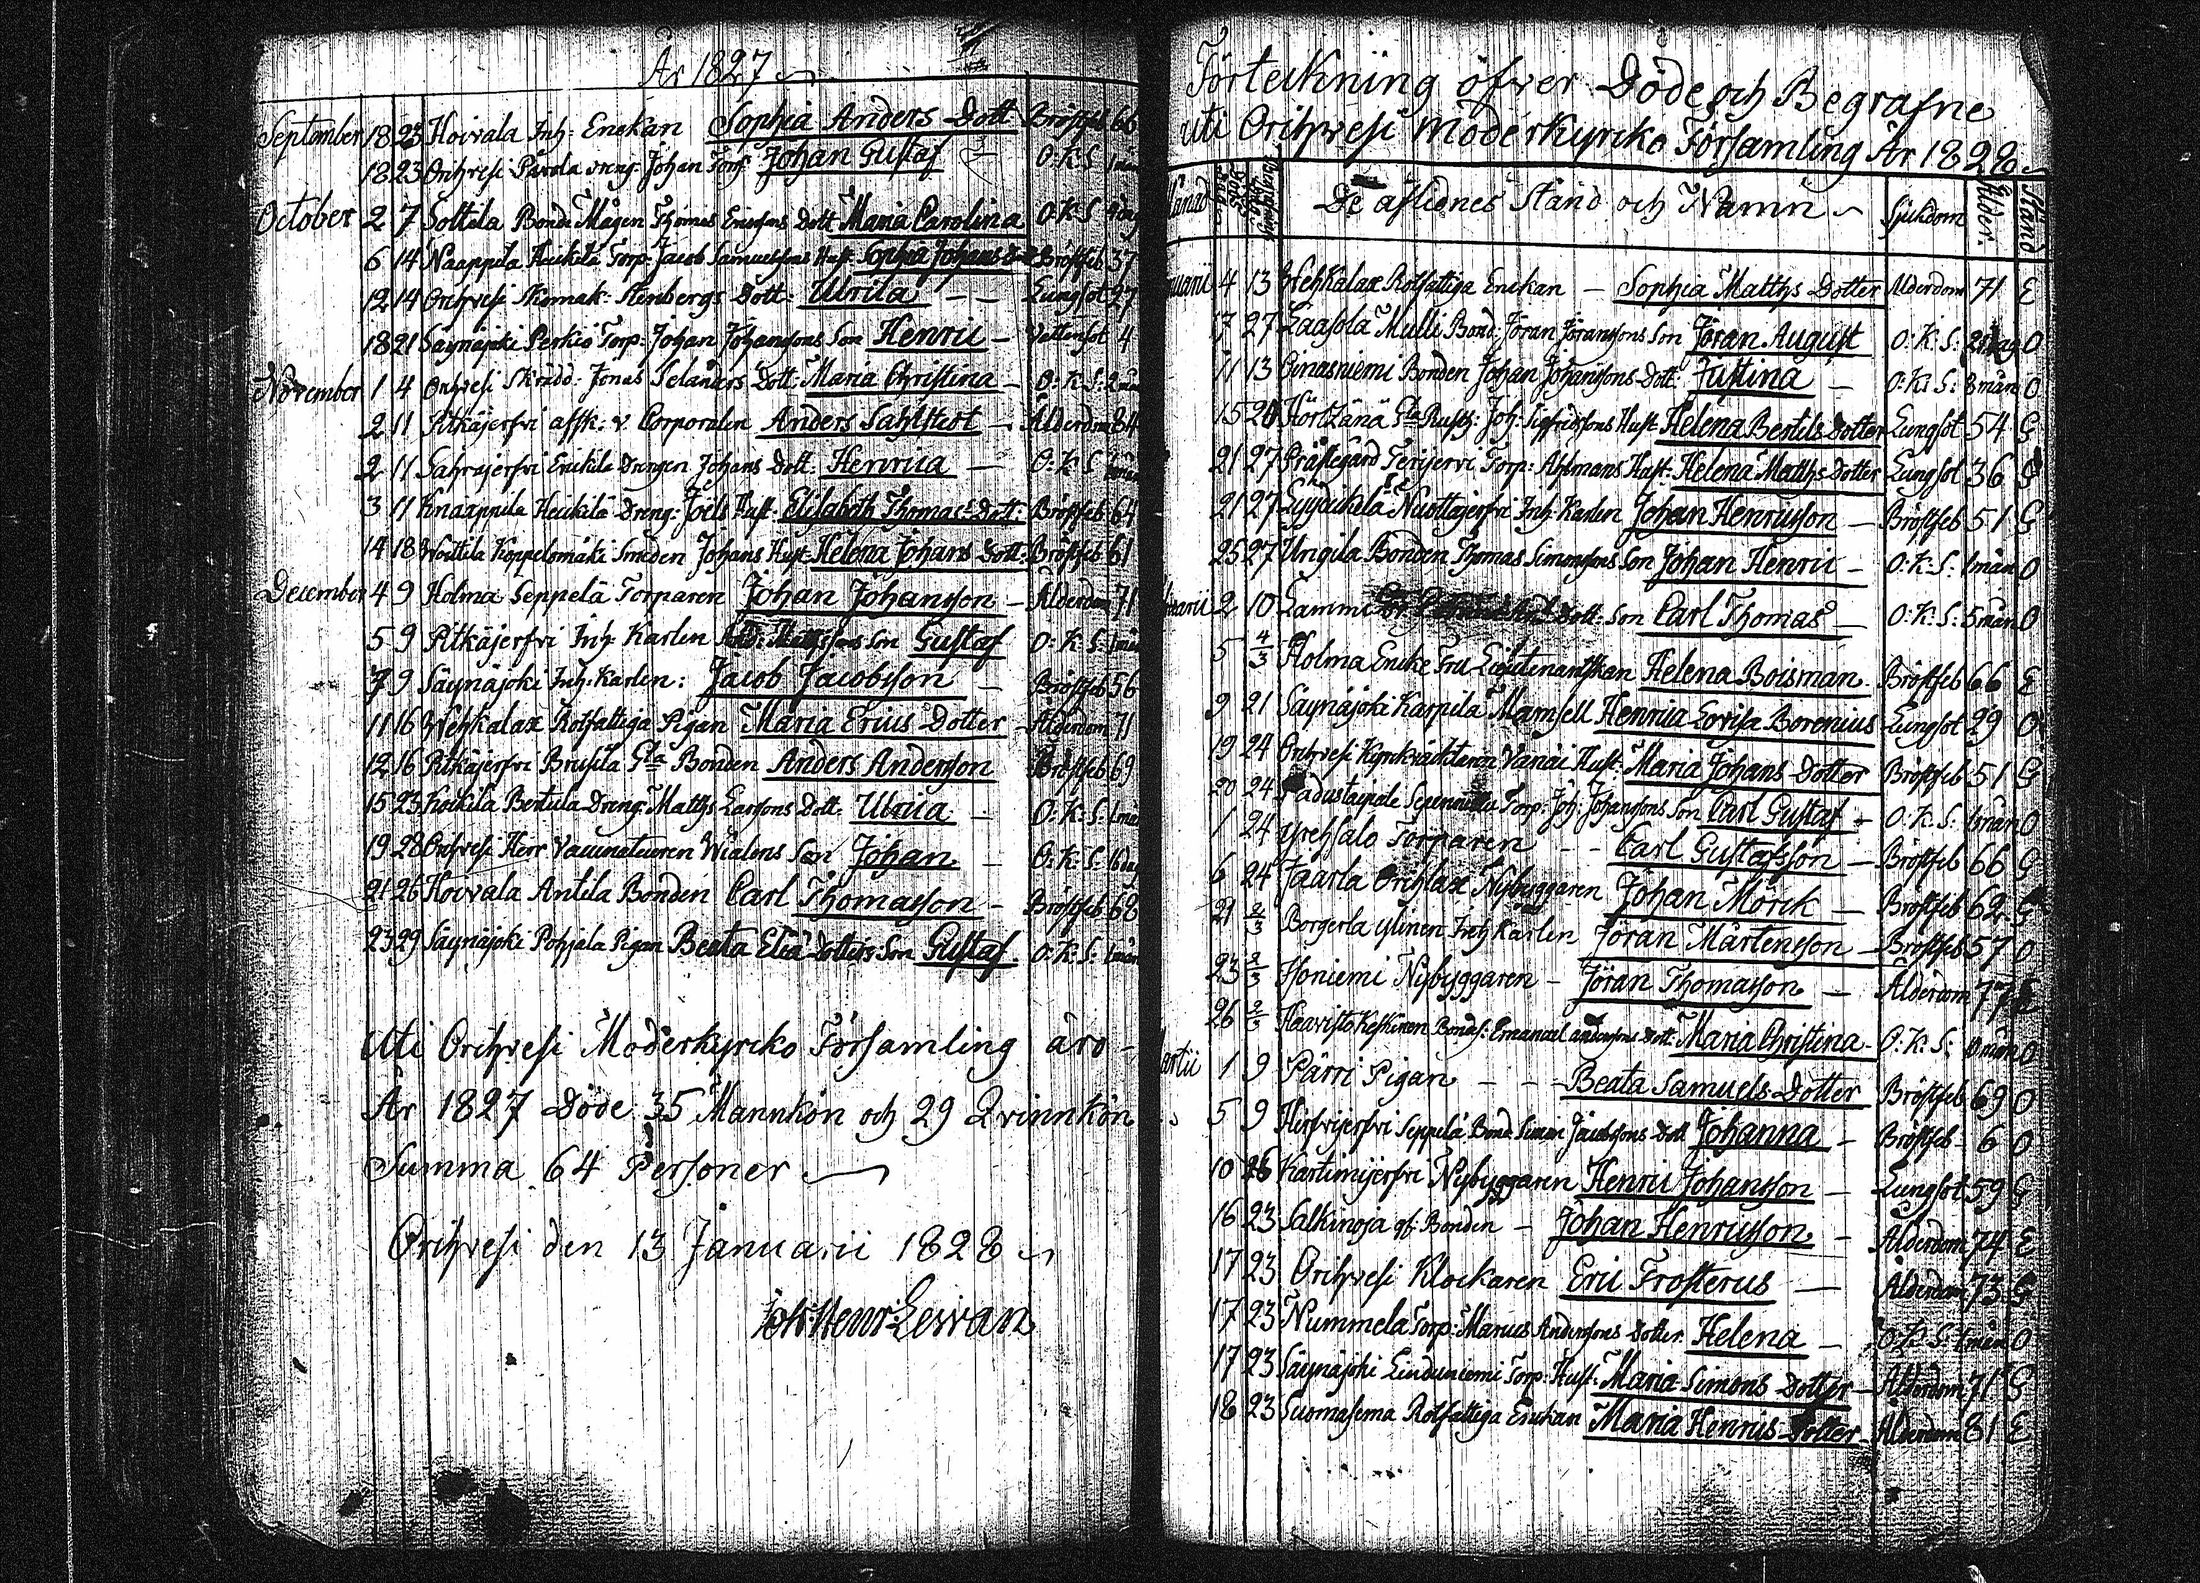 År 1827
September 18 23 Hoivala Inh: Enckan Sophia Anders Dott Bröstfeb 66
18 23 Orihvesi Parola dreng: Johan Tom: Johan Gustaf O: K: S: 1 mån
October 2 7 Sottila Bonde Mågen Thomas Ericssons Dott Maria Carolina O: K: S: 9 dag
6 14 Naappila Heikilä Torp: Jacob Samuelssons Hust: Sophia Johans Dott Bröstfeb 37
12 14 Orihvesi Skomak: Stenbergs Dott: Ulrica Lungsot 27
18 21 Säynäjoki Perkiö Torp: Johan Johanssons Son Henric Vattensot 4
November 1 4 Orihvesi Skrädd: Jonas Selanders Dott: Maria Christina O: K: S: 2 mån
2 11 Pitkäjerfvi afsk: v. Corporalen Anders Sahlstedt Ålderdom 84
2 11 Sahrajerfvi Erickilä Drengen Johans Dott: Henrica O: K: S:
3 11 Knaappila Heickilä Dreng: Joels Hust: Elisabeth Thomas Dott: Bröstfeb 64
14 18 Woittila Koppelomäki Smeden Johans Hust Helena Johans Dott: Bröstfeb 61
December 4 9 Holma Seppelä Torparen Johan Johansson Ålderdom 71
5 9 Pitkäjerfvi Inh: Karlen Mattssons Son Gustaf O: K: S: 1 mån
7 9 Säynäjoki Inh: Karlen: Jacob Jacobsson Bröstfeb 56
11 16 Wehkalax Rotfattiga Pigan Maria Erics Dotter Ålderdom 71
12 16 Pitkäjerfvi Brusila Gla Bonden Anders Andersson Bröstfeb 69
15 23 Koickila Bertula Dreng: Matths Larssons Dott. Ulrica O: K: S: 1 mån
19 28 Orihvesi Herr Vaccinateuren Wialens Son Johan O: K: S: 16 dag
21 26 Hoivala Antila Bonden Carl Thomasson Bröstfeb 68
23 29 Säynäjoki Pohjala Pigan Beata Eliæ Dotters Son Gustaf O: K: S: 1 mån
Uti Orihvesi Moderkyrcko Församling äro
År 1827 Döde 35 Mannkön och 29 Qvinnkön
Summa 64 Personer
Orihvesi den 13 Januarii 1828
Joh: Henr: Levvan
Förteckning öfver Döde och Begrafne
uti Orihvesi Moderkyrcko Församling År 1828
De aflednes Stånd och Namn Sjukdom Ålder. Stånd
4 13 Wehkalax Rotfattiga Enckan Sophia Matths Dotter Ålderdom 71 E
17 27 Laasola Mulli Bond. Jöran Jöranssons Son Jöran August O: K: S: O
11 13 Oinasniemi Bonden Johan Johanssons Dott. Justina O: K: S: 8 mån O
15 20 Hörtzänä Gla Rusth: Joh: Sigfridssons Hust Helena Bertils Dotter Lungsot 54 G
21 27 Prästegård Terijervi Torp: Ahlmans Hust: Helena Matths Dotter Lungsot 36 G
21 27 Lyydikelä Nuottajerfvi Inh: Karlen Johan Henricsson Bröstfeb 51 G
25 27 Ungila Bonden Thomas Simonssons Son Johan Henric O: K: S: 1 mån O
2 10 Lammi Dott: Son Carl Thomas O: K: S: 5 mån O
5 4/3 Holma Encke Fru Lieutenantskan Helena Boisman Bröstfeb 66 E
9 21 Säynäjoki Karpila Mamsell Henrica Lovisa Borenius Lungsot 29 O
19 24 Orihvesi Kyrckväcktaren Vänäi Hust: Maria Johans Dotter Bröstfeb 51 G
20 24 Padustaipale Torp: Joh: Johanssons Son Carl Gustaf O: K: S: O
1 24 Yrehsalo Torparen Carl Gustafsson Bröstfeb 66 G
6 24 Jäärla Orihlax Nybyggaren Johan Mörck Bröstfeb 62 G
21 2/3 Borgerla Ylinen Inh: Karlen Jöran Mårtensson Bröstfeb 57 O
23 2/3 Honiemi Nybyggaren Jöran Thomasson Ålderdom 77 E
26 2/3 Haavisto Keskinen Bond: Emanuel Anderssons Dott: Maria Christina O: K: S: O
1 9 Pärri Pigan Beata Samuels Dotter Bröstfeb 69 O
5 9 Hirfvijerfvi Seppelä Bond Simon Jacobssons Dott Johanna Bröstfeb 6 O
10 16 Kartimijerfvi Nybyggaren Henric Johansson Lungsot 59 G
16 23 Salkinoja gf: Bonden Johan Henricsson Ålderdom 74 E
17 23 Orihvesi Klockaren Eric Frosterus Ålderdom 73 G
17 23 Nummela Torp: Marcus Anderssons Dotter Helena O: K: S: 1 mån O
17 23 Säynäjoki Linduniemi Torp: Hust: Maria Simons Dotter Ålderdom 71 G
18 23 Suomasema Rotfattiga Enckan Maria Henrics Dotter Ålderdom 81 E